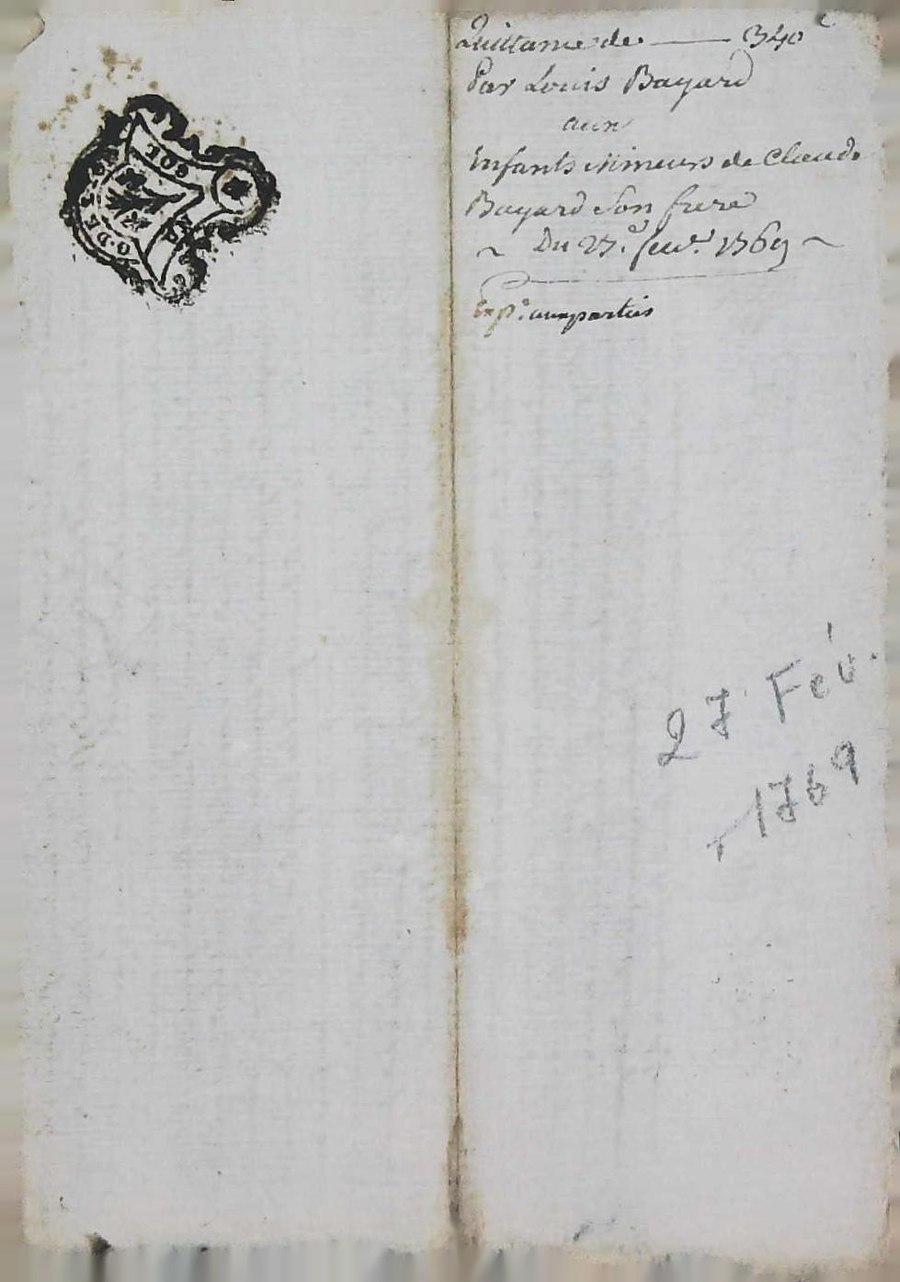 Quittance de — 340ᵗ
Par Louis Bayard
aux
Enfants Mineurs de Claude
Bayard Son frere
~ Du 27.ᵉ fevr. 1769 ~
Exp.ᵉ aux parties
27 Fév.
1769